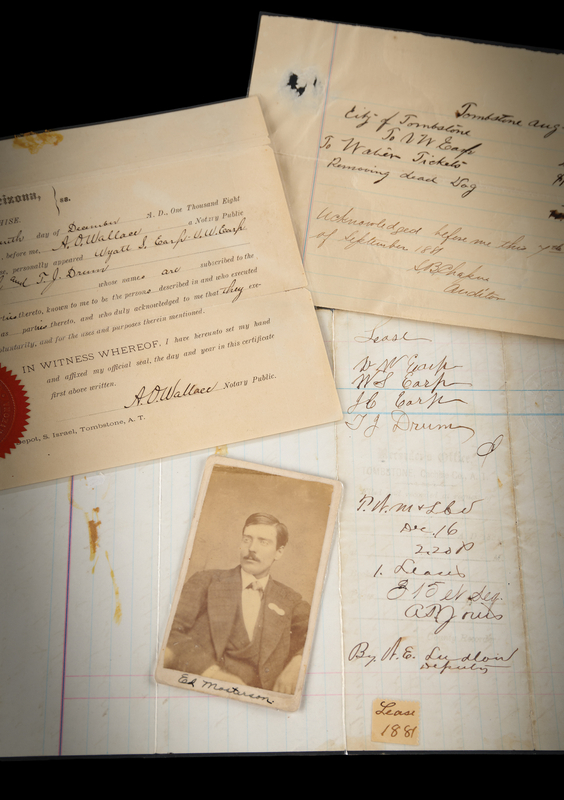 rizona,
ss.
WISE.
day of December A. D., One Thousand Eight
before me, A. O. Wallace a Notary Public
personally appeared Wyatt S. Earp V. W. Earp
and T. J. Drum
whose names are subscribed to the
thereto, known to me to be the persons described in and who executed
parties thereto, and who duly acknowledged to me that they exe-
oluntarily, and for the uses and purposes therein mentioned.
IN WITNESS WHEREOF, I have hereunto set my hand
and affixed my official seal, the day and year in this certificate
first above written.
A. O. Wallace Notary Public.
epot, S. Israel, Tombstone, A. T.
Tombstone Aug
City of Tombstone
To V W Earp
To Water Tickets
Removing dead Dog
Acknowledged before me this
of September
Auditor
Lease
V W Earp
W S Earp
J C Earp
T J Drum
Dec. 16
2.20 P
1. Leases
A D Jones
By A. E. Ludlow
Deputy
Ed Masterson.
Lease
1881